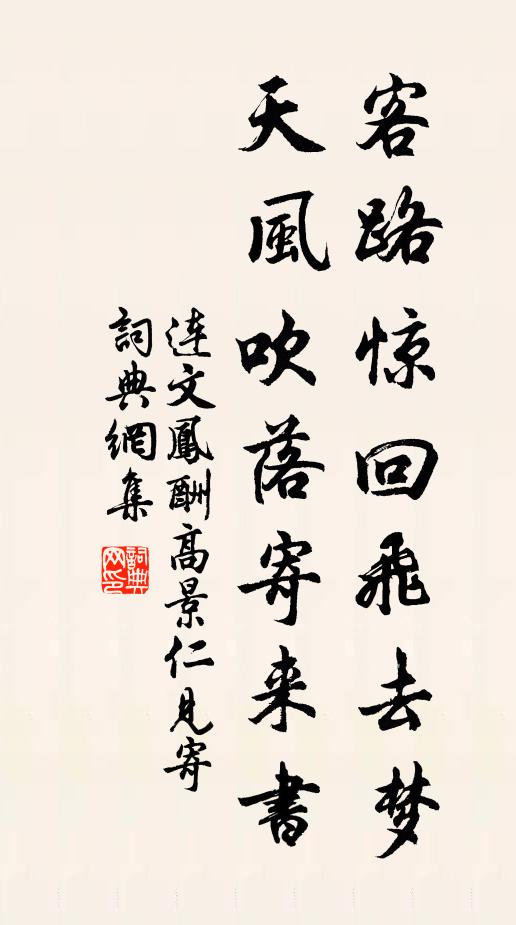 客路惊回飛去梦
天風吹落寄来書
连文鳳酬高景仁见寄
詞典網集
詞典网印